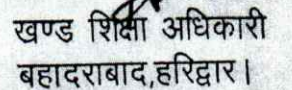 खण्ड शिक्षा अधिकारी
बहादराबाद,हरिद्वार।